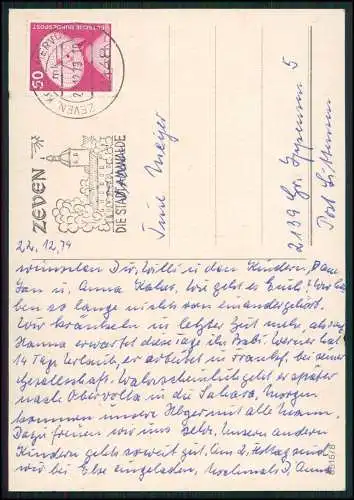 50
DEUTSCHE BUNDESPOST
ZEVEN
ZEVEN
DIE STADT AM WALDE
Tine Meyer
2139 Gr. Ippensen 5
Post Sittensen
22.12.79
wünschen Dir, Willi u. den Kindern,
Jan u. Anna Wie geht es Euch? Wir ha-
ben so lange nichts voneinander gehört.
Wir in letzter Zeit mehr, als
Hanna erwartet diese Tage ihr Baby. Werner hat
14 Tage Urlaub, er arbeitet in bei einer
Gesellschaft. Wahrscheinlich geht er später
nach Obervolta in die Sahara. Morgen
kommen unsere mit alle Mann.
Dazu freuen wir uns sehr. Unsern andern
Kindern geht's soweit gut. Am 2. Festtag sind
wir bei Else eingeladen. Nochmals D. Anna